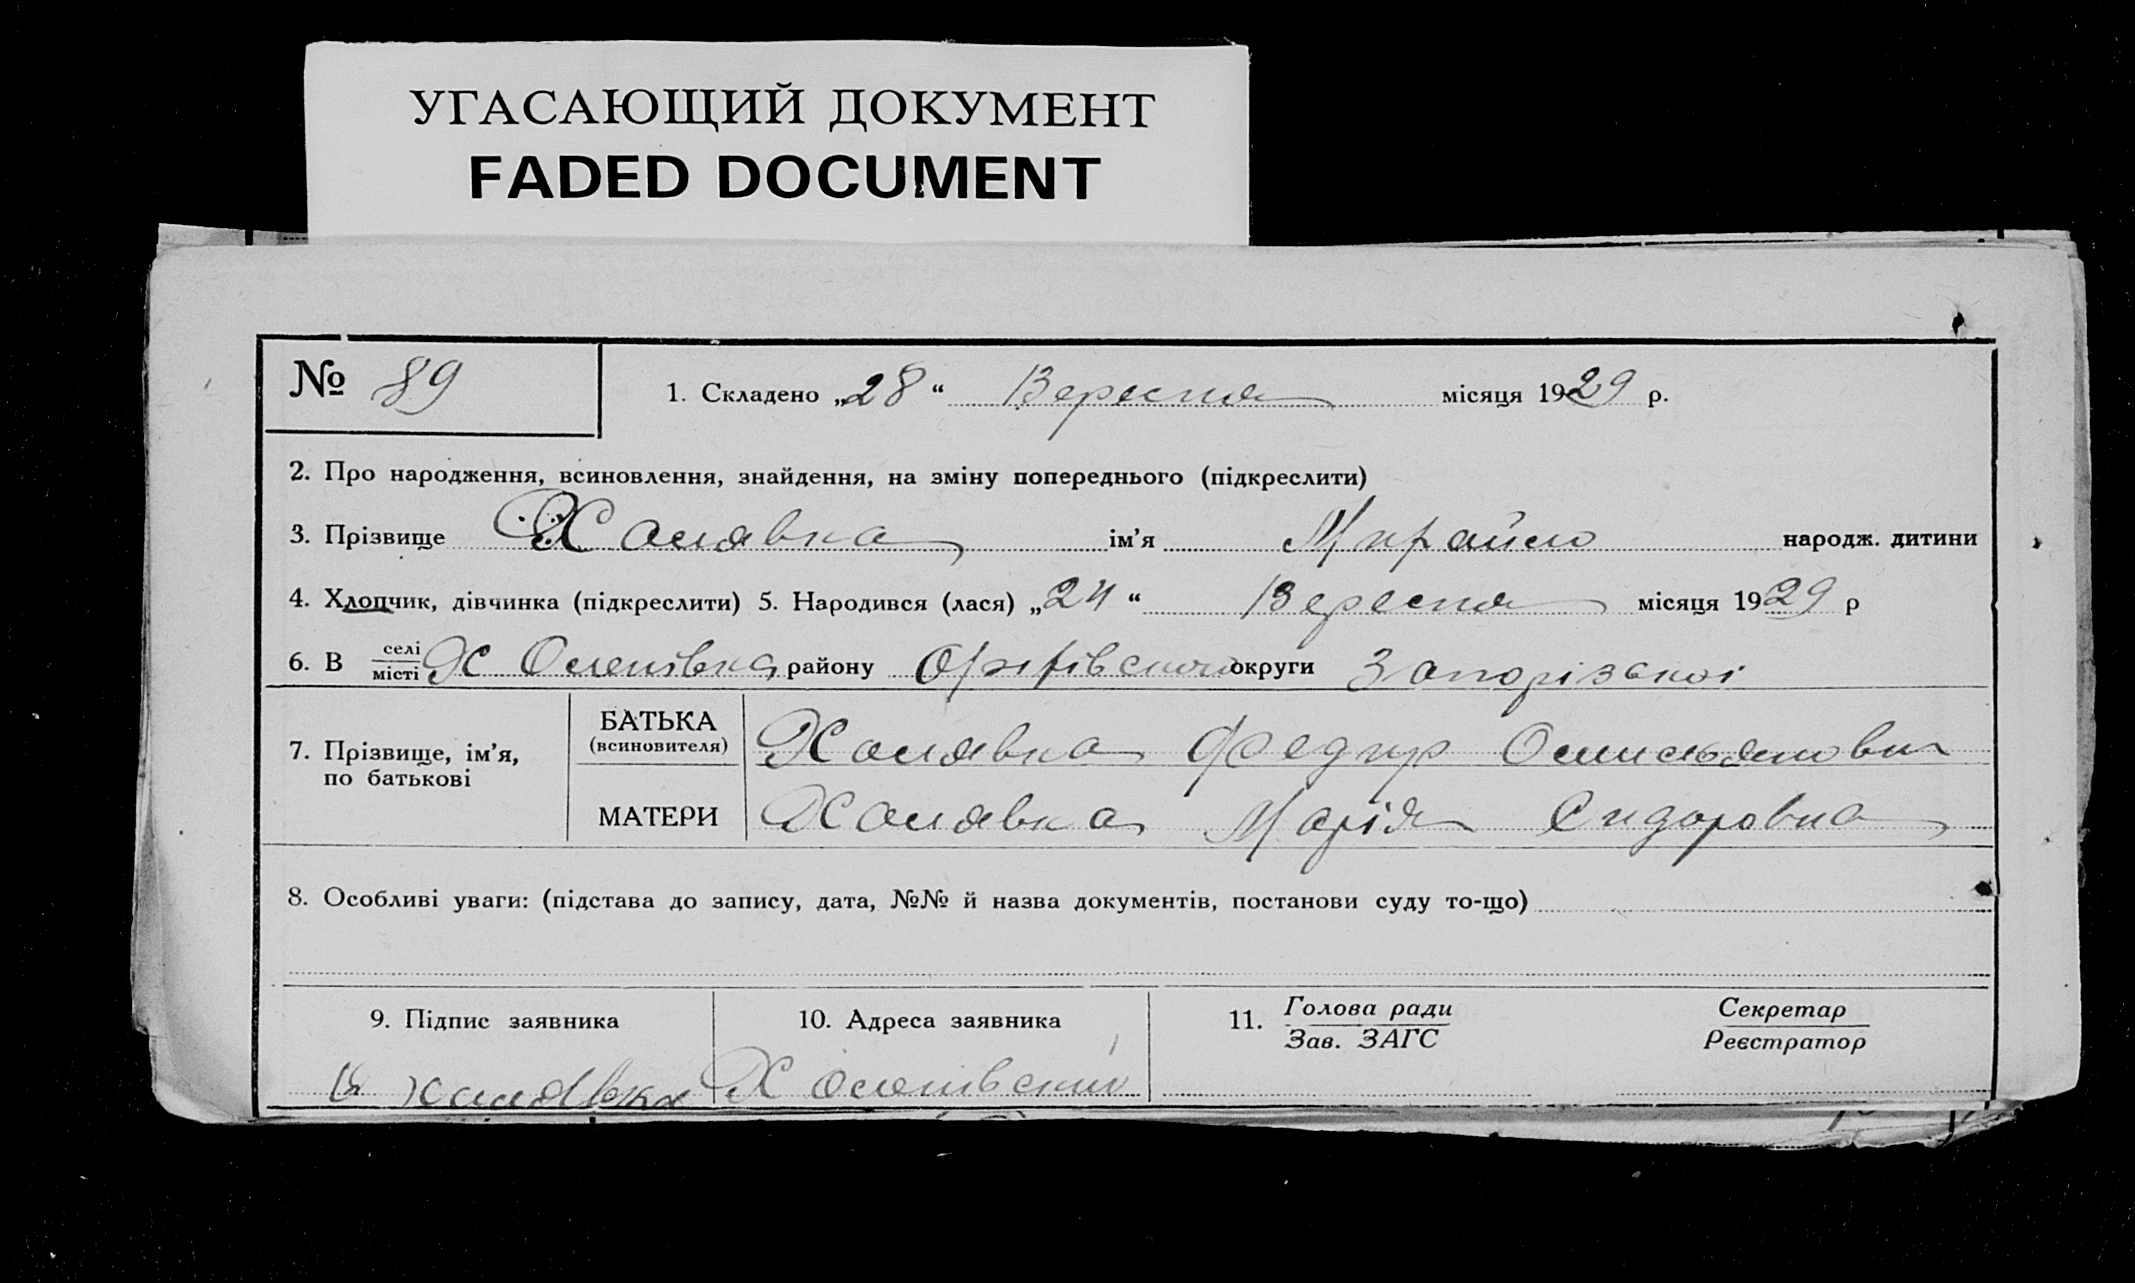 УГАСАЮЩИЙ ДОКУМЕНТ
FADED DOCUMENT
№ 89
1. Складено „28“ Вересня місяця 1929 р.
2. Про народження, всиновлення, знайдення, на зміну попереднього (підкреслити)
3. Прізвище Халявка ім’я Михайло народж. дитини
4. Хлопчик, дівчинка (підкреслити) 5. Народився (лася) „24“ Вересня місяця 1929 р
6. В селі
місті Х Оленівка району Оріхівського округи Запорізької
7. Прізвище, ім’я,
по батькові
БАТЬКА
(всиновителя)
Халявка Федир
МАТЕРИ
Халявка Марія Сидоровна
8. Особливі уваги: (підстава до запису, дата, №№ й назва документів, постанови суду то-що)
9. Підпис заявника
10. Адреса заявника
11. Голова ради
Зав. ЗАГС
Секретар
Реєстратор
Халявка
Х